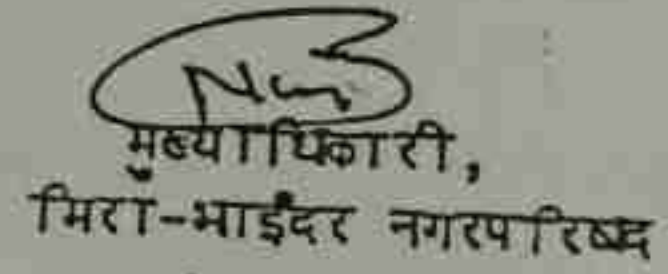 मुख्याधिकारी,
मिरा-भाईंदर नगरपरिषद